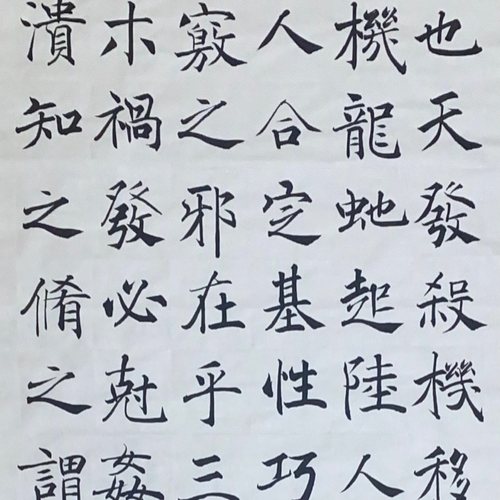 也天發殺機移
機龍虵起陸人
人合定基性巧
竅之邪在乎三
木禍發必尅姦
潰知之脩之謂